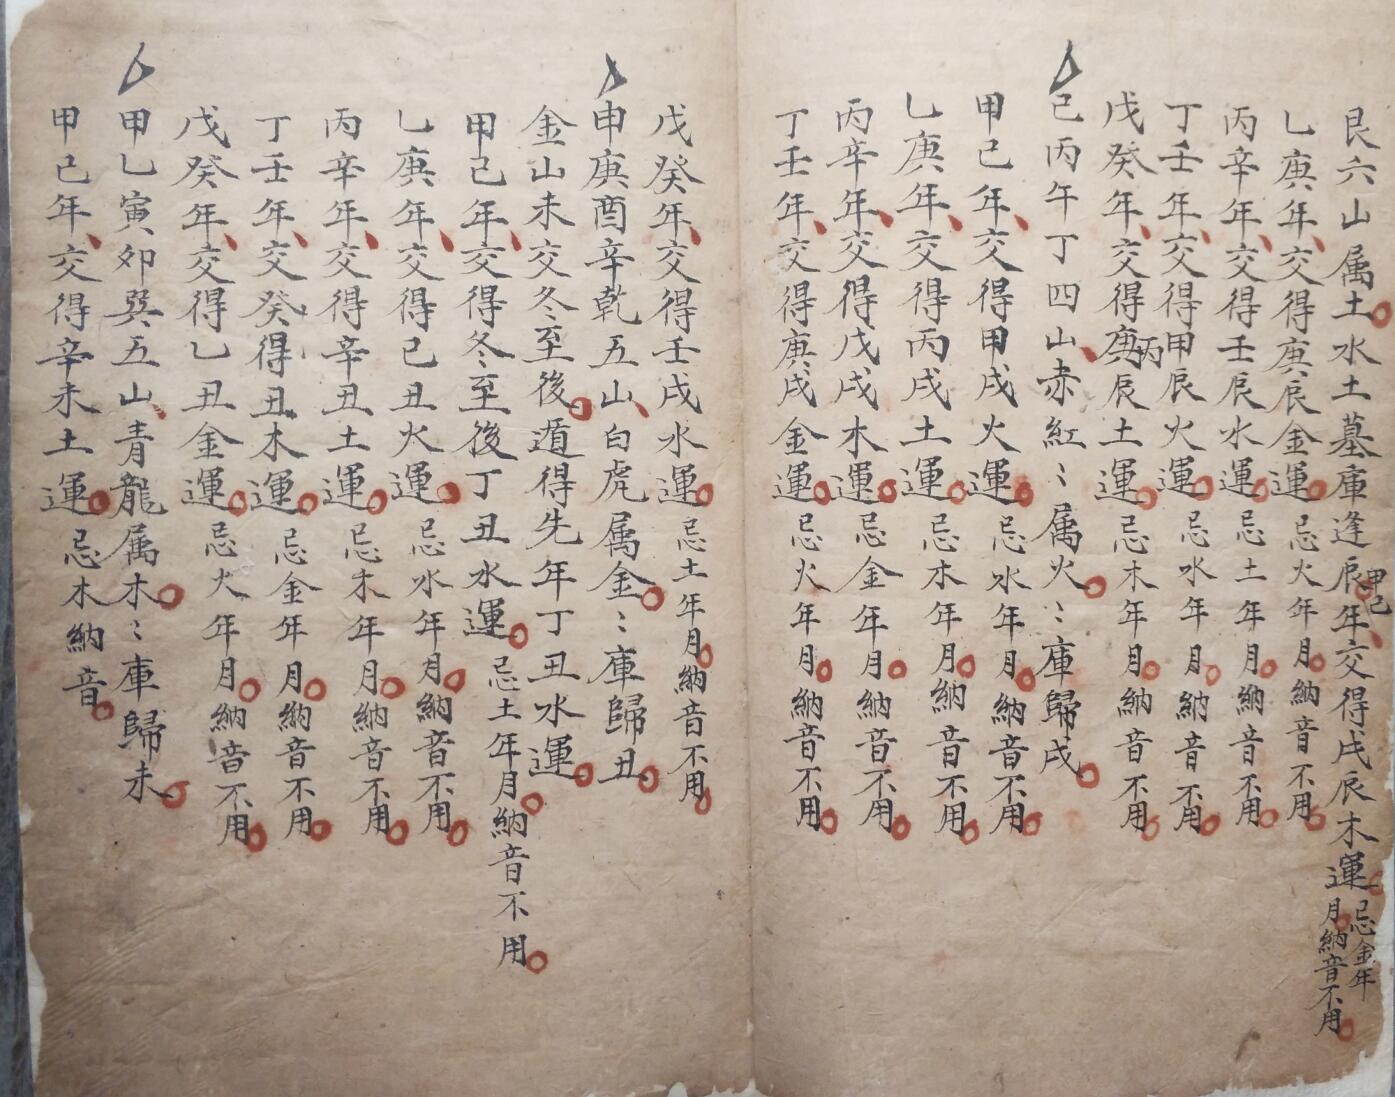 艮六山属土水土墓庫逢辰甲己年交得戊辰木運忌金年月納音不用
乙庚年交得庚辰金運忌火年月納音不用
丙辛年交得壬辰水運忌土年月納音不用
丁壬年交得甲辰火運忌水年月納音不用
戊癸年交得庚丙辰土運忌木年月納音不用
己丙午丁四山赤紅〻属火〻庫歸戌
甲己年交得甲戌火運忌水年月納音不用
乙庚年交得丙戌土運忌木年月納音不用
丙辛年交得戊戌木運忌金年月納音不用
丁壬年交得庚戌金運忌火年月納音不用
戊癸年交得壬戌水運忌土年月納音不用
申庚酉辛乾五山白虎属金〻庫歸丑
金山未交冬至後遁得先年丁丑水運
甲己年交得冬至後丁丑水運忌土年月納音不用
乙庚年交得己丑火運忌水年月納音不用
丙辛年交得辛丑土運忌木年月納音不用
丁壬年交癸得丑木運忌金年月納音不用
戊癸年交得乙丑金運忌火年月納音不用
甲乙寅卯巽五山青龍属木〻庫歸未
甲己年交得辛未土運忌木納音